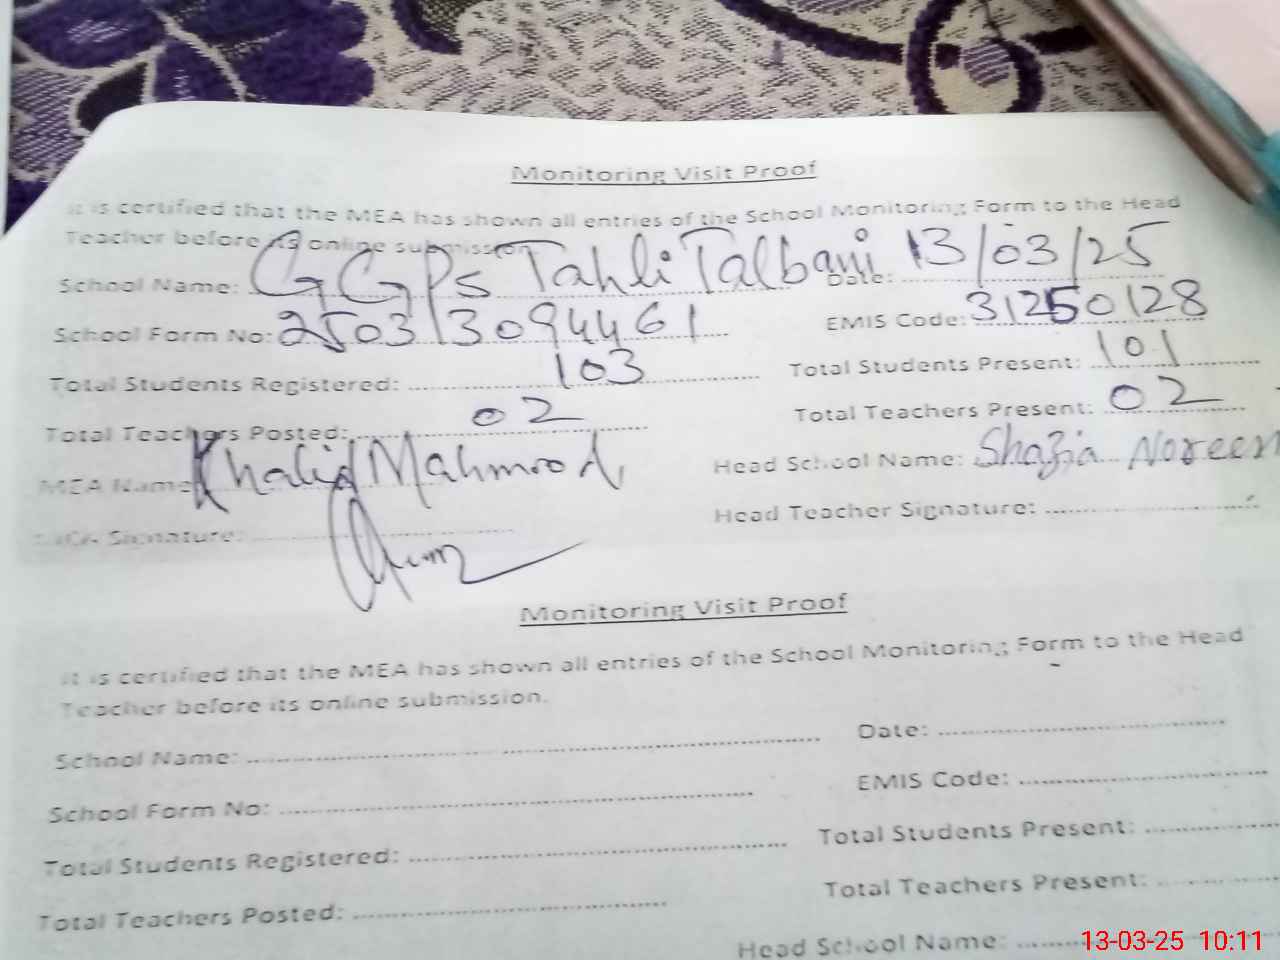 Monitoring Visit Proof
It is certified that the MEA has shown all entries of the School Monitoring Form to the Head
Teacher before its online submission.
School Name: GGPs Tahli Talbani Date: 13/03/25
School Form No: 250313094461 EMIS Code: 31250128
Total Students Registered: 103 Total Students Present: 101
Total Teachers Posted: 02 Total Teachers Present: 02
MEA Name Khalid Mahmood Head School Name: Shazia Noreen
MEA Signature: Head Teacher Signature:
Monitoring Visit Proof
It is certified that the MEA has shown all entries of the School Monitoring Form to the Head
Teacher before its online submission.
School Name: Date:
School Form No: EMIS Code:
Total Students Registered: Total Students Present:
Total Teachers Posted: Total Teachers Present:
Head School Name:
13-03-25 10:11